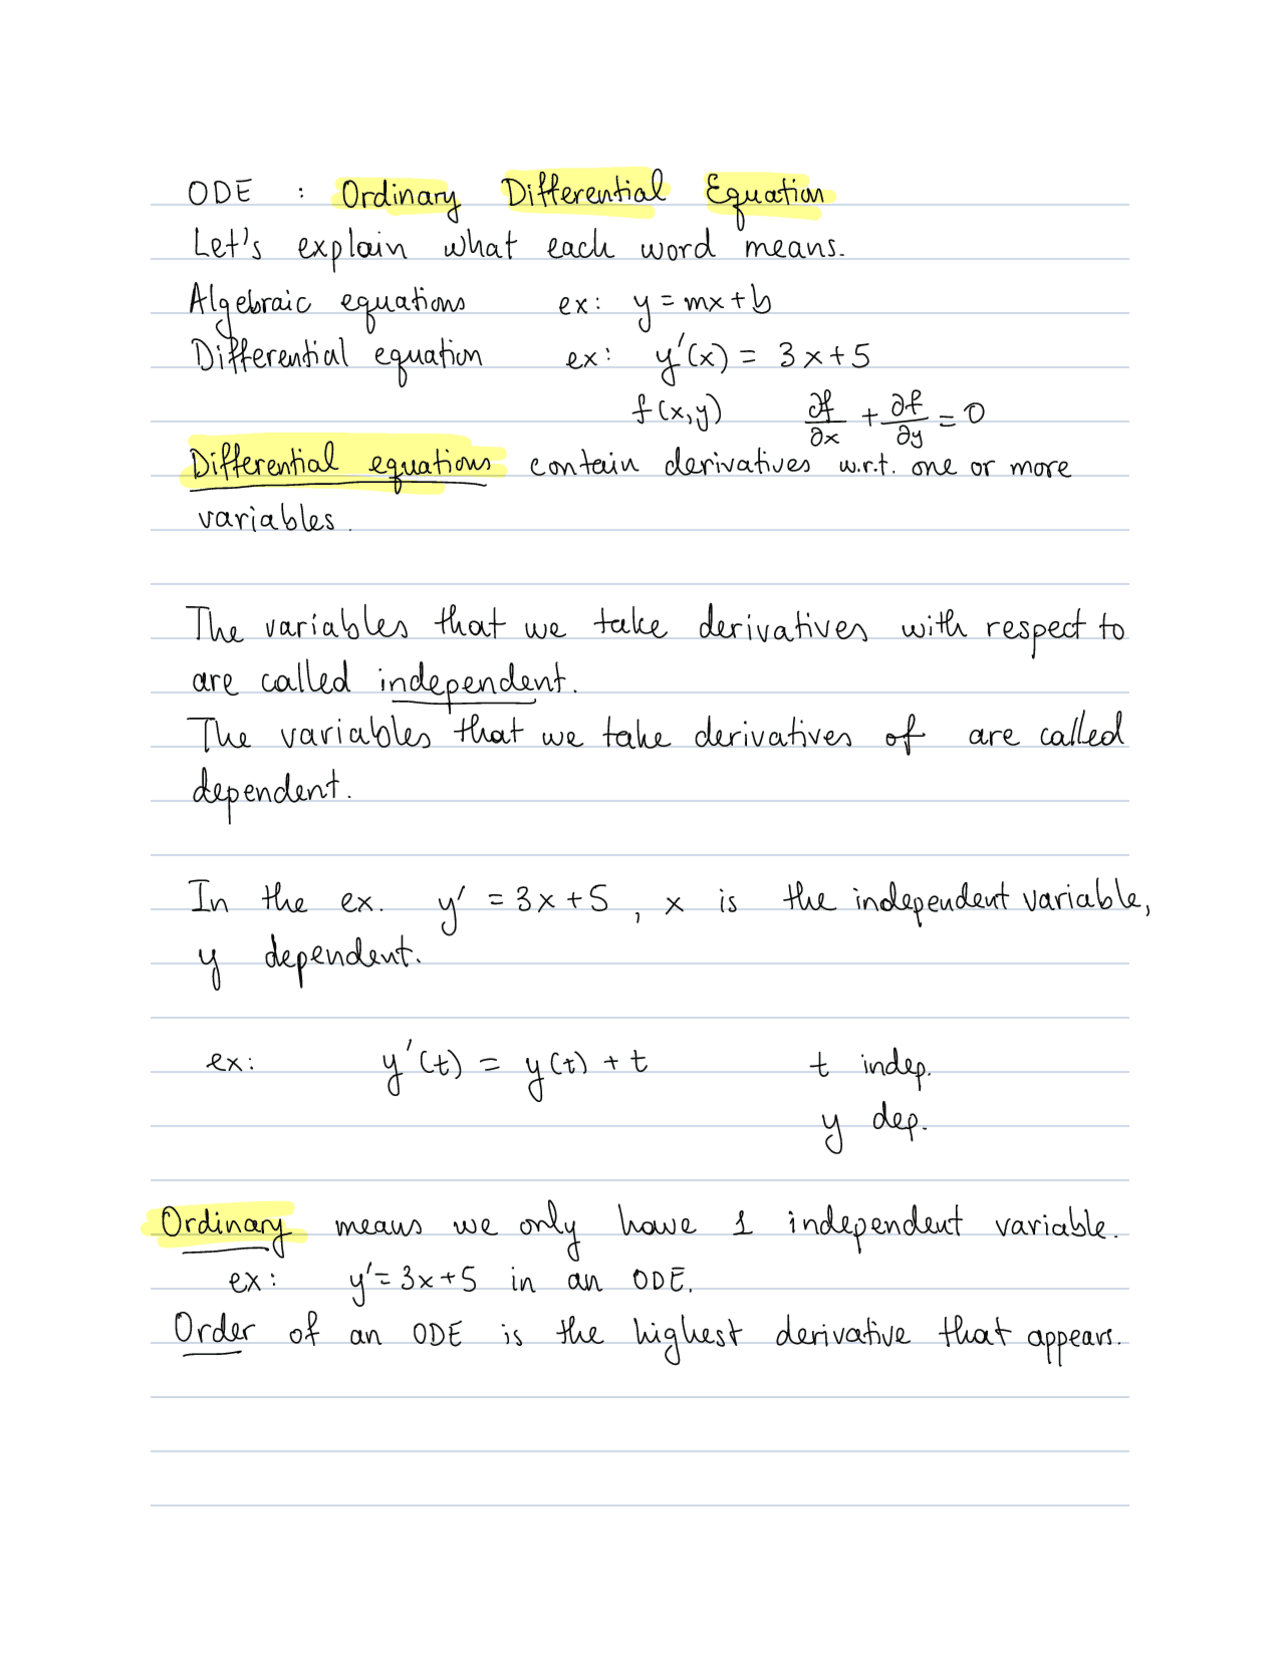 ODE : Ordinary Differential Equation
Let's explain what each word means.
Algebraic equations ex: y = mx + b
Differential equation ex: y'(x) = 3x+5
f(x,y) ∂f/∂x + ∂f/∂y = 0
Differential equations contain derivatives w.r.t. one or more
variables.
The variables that we take derivatives with respect to
are called independent.
The variables that we take derivatives of are called
dependent.
In the ex. y' = 3x+5, x is the independent variable,
y dependent.
ex: y'(t) = y(t) + t t indep.
y dep.
Ordinary means we only have 1 independent variable.
ex: y'= 3x+5 in an ODE.
Order of an ODE is the highest derivative that appears.